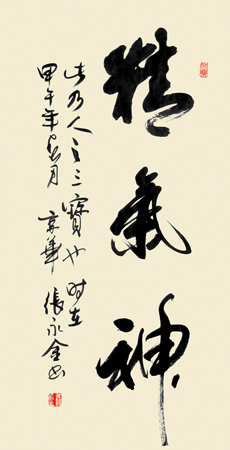 精氣神
此乃人之三寶也時在
甲午年夏月京華張永金書